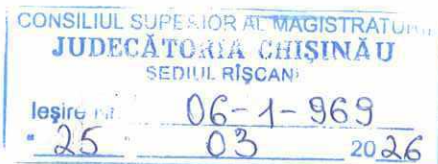 CONSILIUL SUPERIOR AL MAGISTRATURII
JUDECĂTORIA CHIȘINĂU
SEDIUL RÎȘCANI
Ieșire Nr. 06-1-969
"25 03 2026